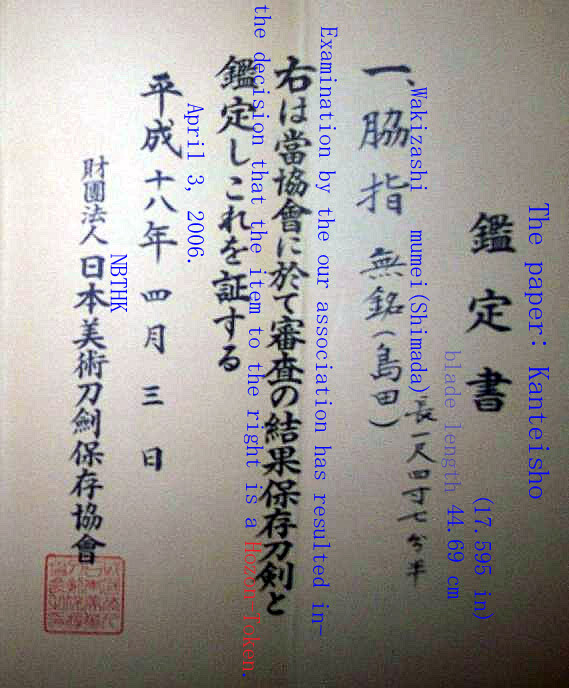 The paper: Kanteisho
鑑定書
(17.595 in)
blade length 44.69 cm
Wakizashi mumei(Shimada)
一、脇指 無銘(島田)長一尺四寸七分半
Examination by the our association has resulted in-
右は當協會に於て審査の結果保存刀剣と
the decision that the item to the right is a Hozon-Token.
鑑定しこれを証する
April 3, 2006.
平成十八年四月三日
NBTHK
財團法人日本美術刀劍保存協會